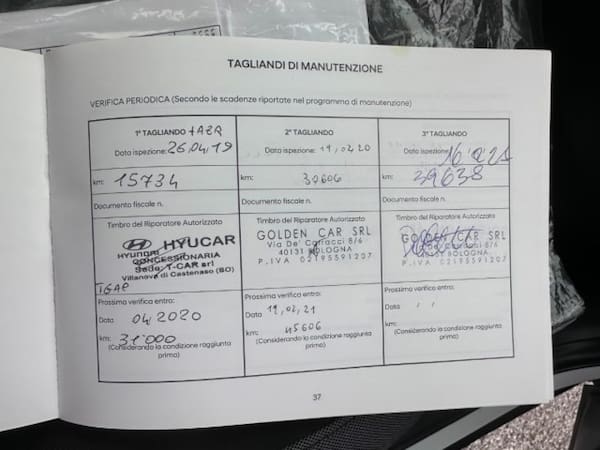 TAGLIANDI DI MANUTENZIONE
VERIFICA PERIODICA (Secondo le scadenze riportate nel programma di manutenzione)
1° TAGLIANDO
Data ispezione: 26,04,19
km: 15734
Documento fiscale n.
Timbro del Riparatore Autorizzato
HYUCAR
HYUNDAI
CONCESSIONARIA
Sede: T-CAR srl
Villanova di Castenaso (BO)
Prossima verifica entro:
Data 04/2020
km: 31000
(Considerando la condizione raggiunta prima)
2° TAGLIANDO
Data ispezione: 19,02,20
km: 30606
Documento fiscale n.
Timbro del Riparatore Autorizzato
GOLDEN CAR SRL
Via De' Carracci 8/6
40131 BOLOGNA
P.IVA 02195591207
Prossima verifica entro:
Data 19,02,21
km: 45606
(Considerando la condizione raggiunta prima)
3° TAGLIANDO
Data ispezione:
km: 39638
Documento fiscale n.
Timbro del Riparatore Autorizzato
GOLDEN CAR SRL
Via De' Carracci 8/6
40131 BOLOGNA
P.IVA 02195591207
Prossima verifica entro:
Data / /
km:
(Considerando la condizione raggiunta prima)
37